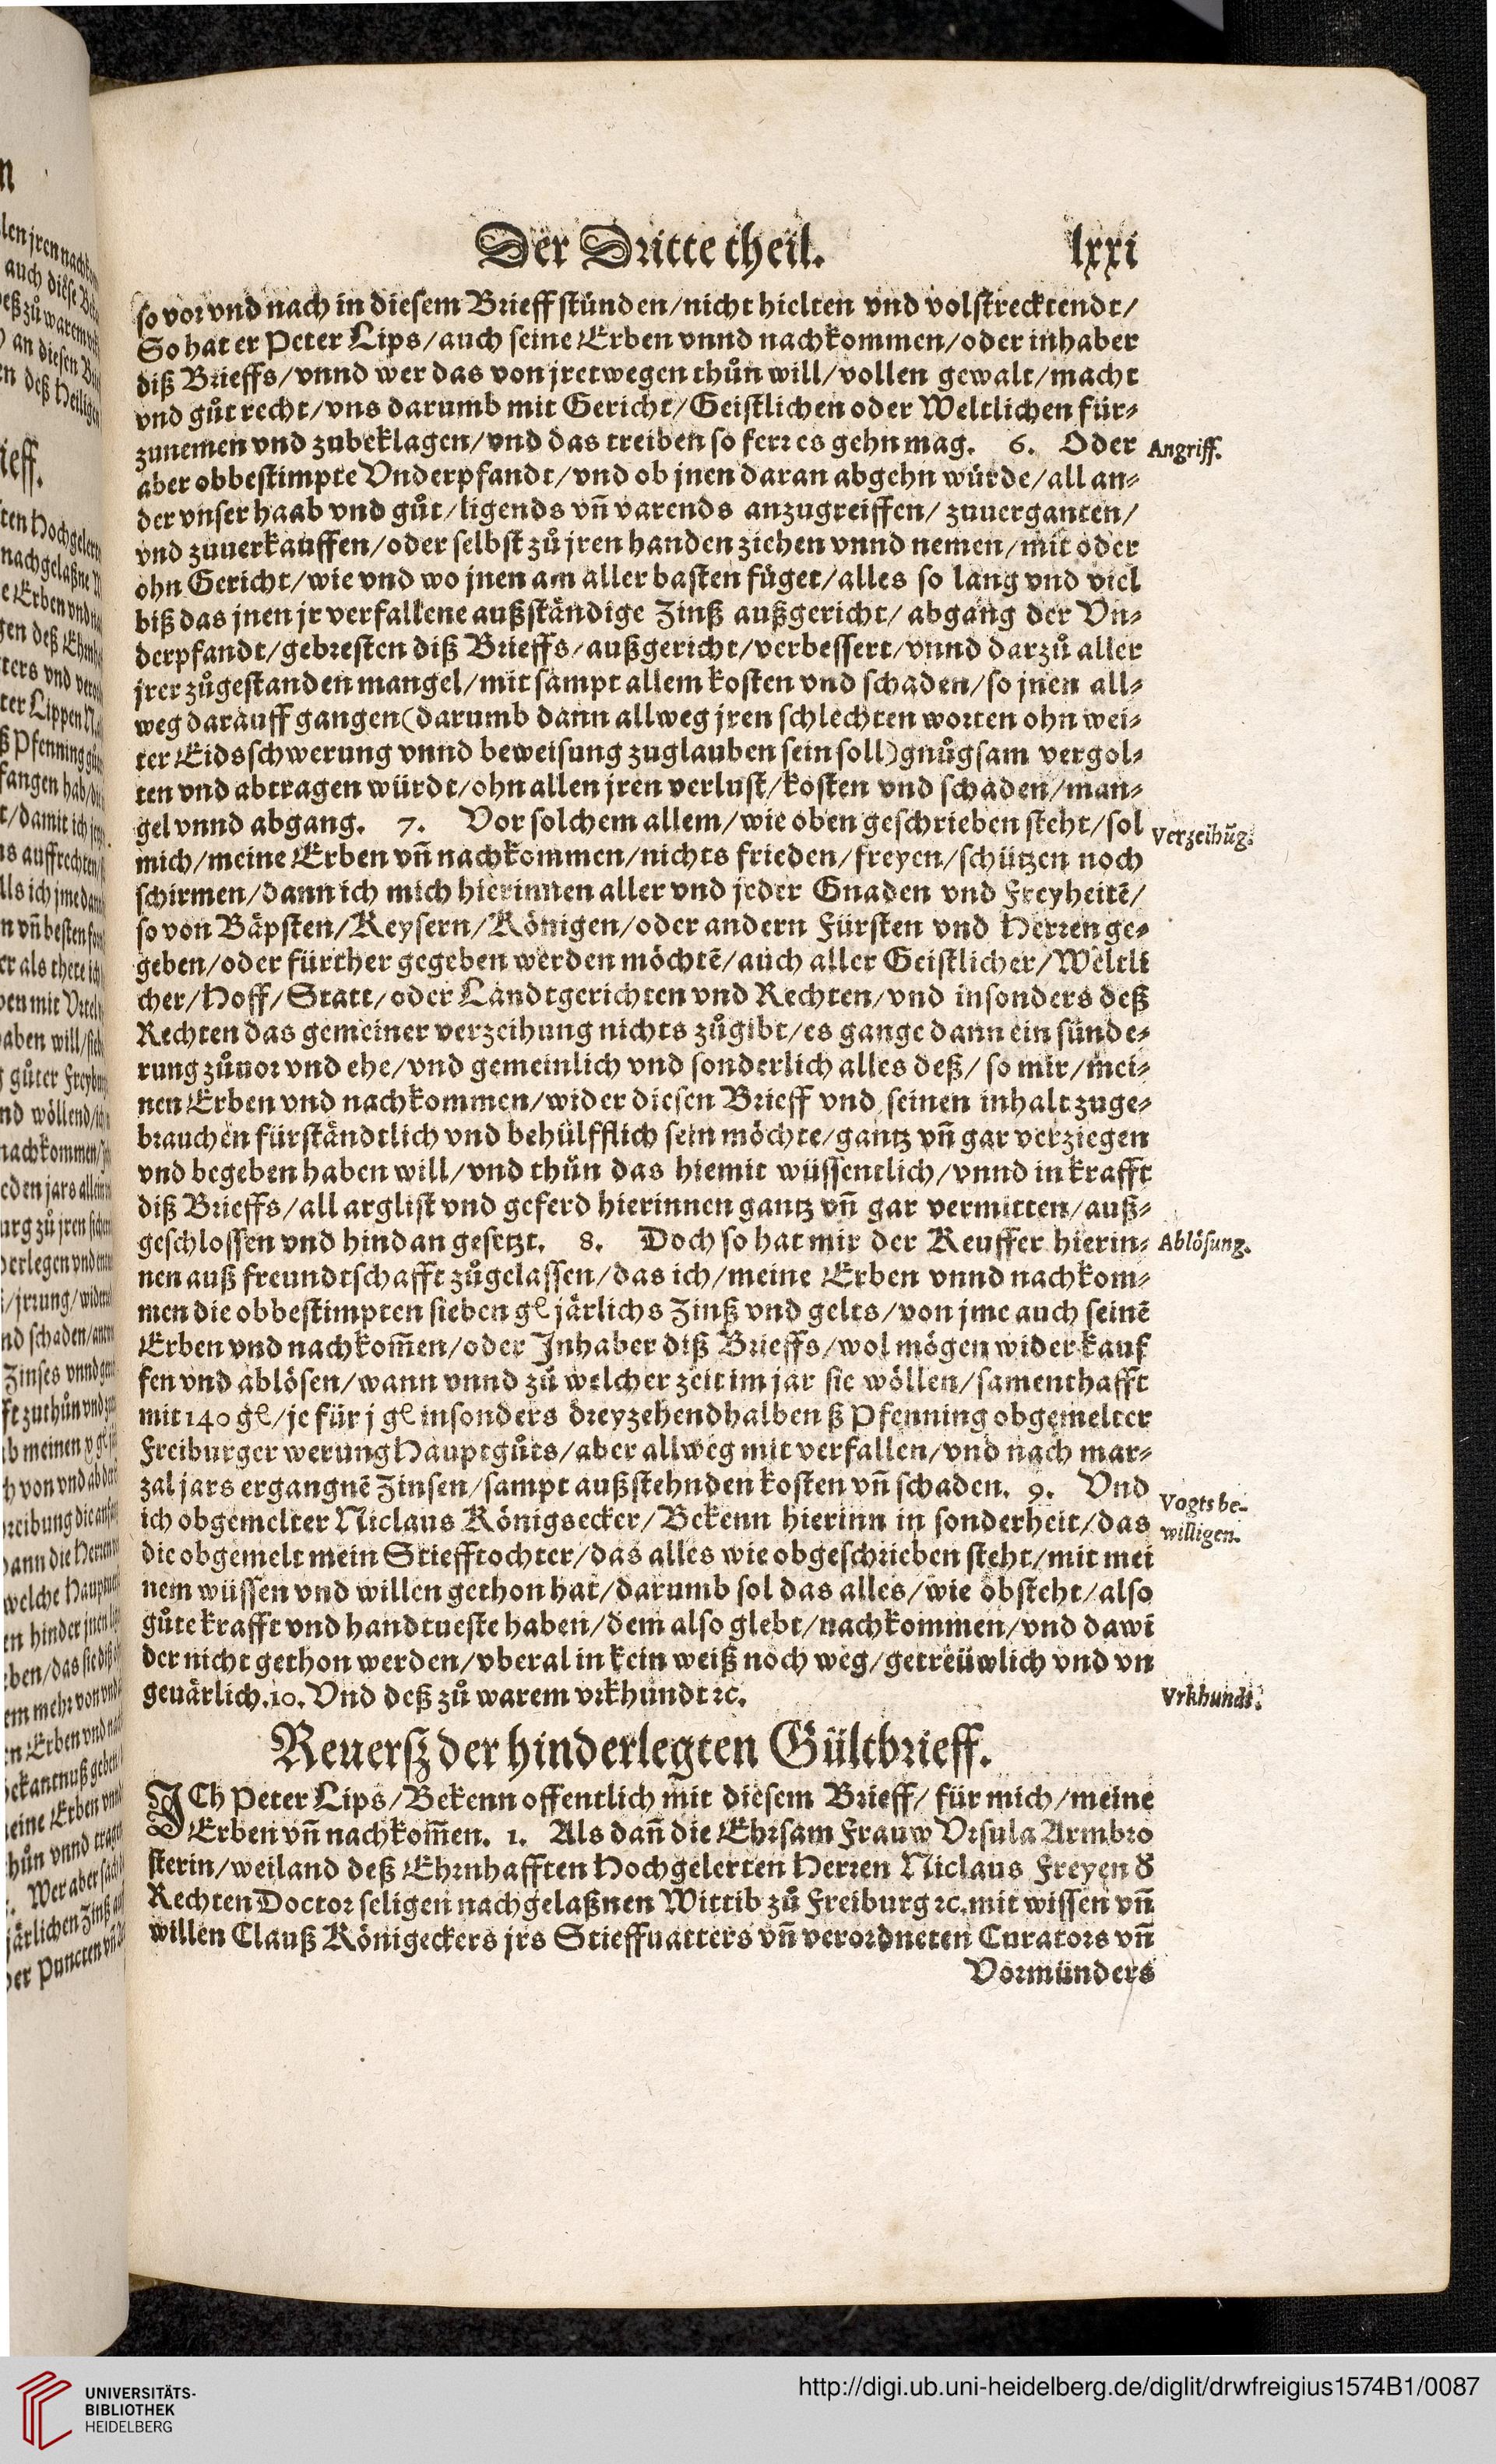 Der Dritte theil. lxxi
so vor vnd nach in diesem Brieff stünden/nicht hielten vnd volstrecktendt/
So hat er Peter Lips/auch seine Erben vnnd nachkommen/oder inhaber
diß Brieffs/vnnd wer das von jretwegen thůn will/vollen gewalt/macht
vnd gůt recht/vns darumb mit Gericht/Geistlichen oder Weltlichen für⸗
zunemen vnd zubeklagen/vnd das treiben so ferr es gehn mag. 6. Oder
Angriff.
aber obbestimpte Vnderpfandt/vnd ob jnen daran abgehn würde/all an⸗
der vnser haab vnd gůt/ligends vñ varends anzugreiffen/zuuerganten/
vnd zuuerkauffen/oder selbst zů jren handen ziehen vnnd nemen/mit oder
ohn Gericht/wie vnd wo jnen am aller basten füget/alles so lang vnd viel
biß das jnen jr verfallene außständige Zinß außgericht/abgang der Vn⸗
derpfandt/gebresten diß Brieffs/außgericht/verbessert/vnnd darzů aller
jrer zůgestanden mangel/mit sampt allem kosten vnd schaden/so jnen all⸗
weg darauff gangen(darumb dann allweg jren schlechten worten ohn wei⸗
ter Eidsschwerung vnnd beweisung zuglauben sein soll)gnůgsam vergol⸗
ten vnd abtragen würdt/ohn allen jren verlust/kosten vnd schaden/man⸗
gel vnnd abgang. 7. Vor solchem allem/wie oben geschrieben steht/sol
Verzeihūg.
mich/meine Erben vñ nachkommen/nichts frieden/freyen/schützen noch
schirmen/dann ich mich hierinnen aller vnd jeder Gnaden vnd Freyheitē/
so von Bäpsten/Keysern/Königen/oder andern Fürsten vnd Herren ge⸗
geben/oder fürther gegeben werden möchtē/auch aller Geistlicher/Weltli
cher/Hoff/Statt/oder Landtgerichten vnd Rechten/vnd insonders deß
Rechten das gemeiner verzeihung nichts zůgibt/es gange dann ein sünde⸗
rung zůuor vnd ehe/vnd gemeinlich vnd sonderlich alles deß/so mir/mei⸗
nen Erben vnd nachkommen/wider diesen Brieff vnd seinen inhalt zuge⸗
brauchen fürständtlich vnd behülfflich sein möchte/gantz vñ gar verziegen
vnd begeben haben will/vnd thůn das hiemit wüssentlich/vnnd in krafft
diß Brieffs/all arglist vnd geferd hierinnen gantz vñ gar vermitten/auß⸗
geschlossen vnd hindan gesetzt. 8. Doch so hat mir der Keuffer hierin⸗
Ablösung.
nen auß freundtschafft zůgelassen/das ich/meine Erben vnnd nachkom⸗
men die obbestimpten sieben gl järlichs Zinß vnd gelts/von jme auch seinē
Erben vnd nachkom̄en/oder Inhaber diß Brieffs/wol mögen widerkauf
fen vnd ablösen/wann vnnd zů welcher zeit im jar sie wöllen/samenthafft
mit 140 gl/je für j gl insonders dreyzehendhalben ß Pfenning obgemelter
Freiburger werung Hauptgůts/aber allweg mit verfallen/vnd nach mar⸗
zal jars ergangnē Zinsen/sampt außstehnden kosten vñ schaden. 9. Vnd
Vogts be-
willigen.
ich obgemelter Niclaus Königsecker/Bekenn hierinn in sonderheit/das
die obgemelt mein Stiefftochter/das alles wie obgeschrieben steht/mit mei
nem wüssen vnd willen gethon hat/darumb sol das alles/wie obsteht/also
gůte krafft vnd handtueste haben/dem also glebt/nachkommen/vnd dawi
der nicht gethon werden/vberal in kein weiß noch weg/getreüwlich vnd vn
geuärlich. 10. Vnd deß zů warem vrkhundt ꝛc.
Vrkhundt.
Reuersz der hinderlegten Gültbrieff.
ICh Peter Lips/Bekenn offentlich mit diesem Brieff/für mich/meine
Erben vñ nachkom̄en. 1. Als dañ die Ehrsam Frauw Vrsula Armbro
sterin/weiland deß Ehrnhafften Hochgelerten Herren Niclaus Freyen d̕
Rechten Doctor seligen nachgelaßnen Wittib zů Freiburg ꝛc. mit wissen vñ
willen Clauß Königeckers jrs Stieffuatters vñ verordneten Curators vñ
Vormünders
UNIVERSITÄTS-
BIBLIOTHEK
HEIDELBERG
http://digi.ub.uni-heidelberg.de/diglit/drwfreigius1574B1/0087